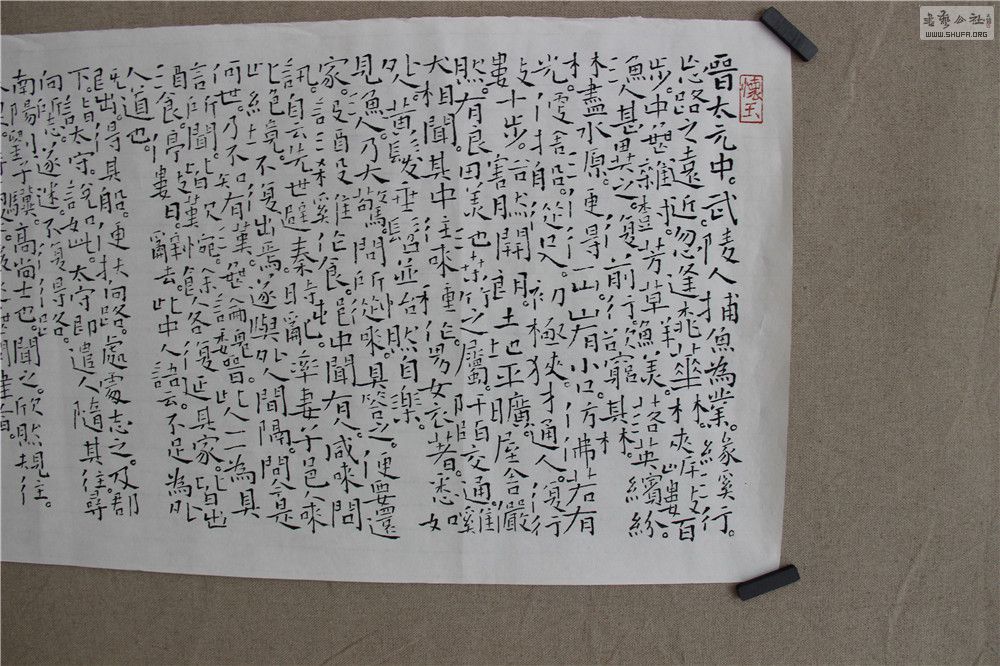 懷玉
晉太元中。武陵人捕魚為業。緣溪行。
忘路之遠近忽逢桃華林。夾岸數百
步。中無雜樹。芳草鮮美。落英繽紛。
漁人甚異之。復前行。欲窮其林。
林盡水原。更得一山。山有小口。仿佛若有
光。便舍船。從口入。初極狹。才通人。復行
數十步。豁然開朗。土地平曠。屋舍嚴
然。有良田美池桑竹之屬。阡陌交通。雞
犬相聞。其中往來種作。男女衣著。悉如
外人。黃髮垂髫。並怡然自樂。
見漁人。乃大驚。問所從來。具答之。便要還
家。設酒殺雞作食。邨中聞有此人。咸來問
訊。自云先世避秦時亂。率妻子邑人來
此絕境。不復出焉。遂與外人間隔。問今是
何世。乃不知有漢。無論魏晉。此人一一為具
言所聞。皆歎惋。餘人各復延至其家。皆出
酒食。停數日。辭去。此中人語云。不足為外
人道也。
既出。得其船。便扶向路。處處志之。及郡
下。詣太守。說如此。太守即遣人隨其往。尋
向所誌。遂迷。不復得路。
南陽劉子驥。高尚士也。聞之。欣然規往。
書藝公社
WWW.SHUFA.ORG